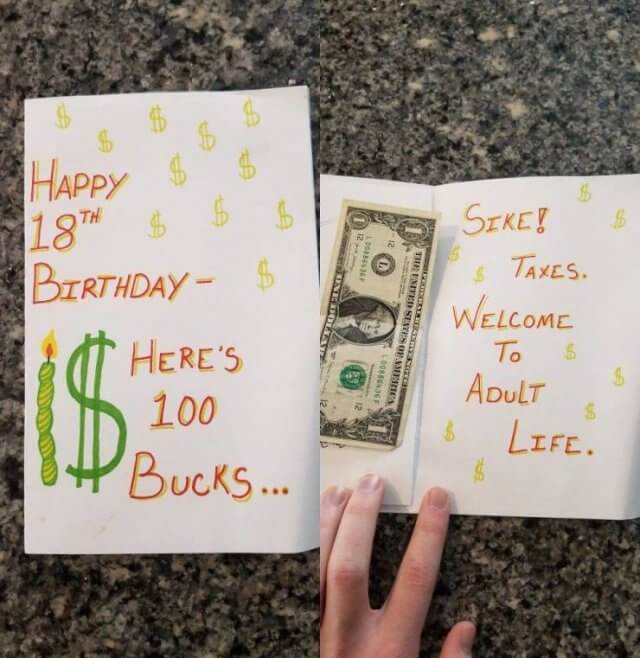 HAPPY
18TH
BIRTHDAY-
HERE'S
100
BUCKS...
SIKE!
TAXES.
WELCOME
TO
ADULT
LIFE.
THE UNITED STATES OF AMERICA